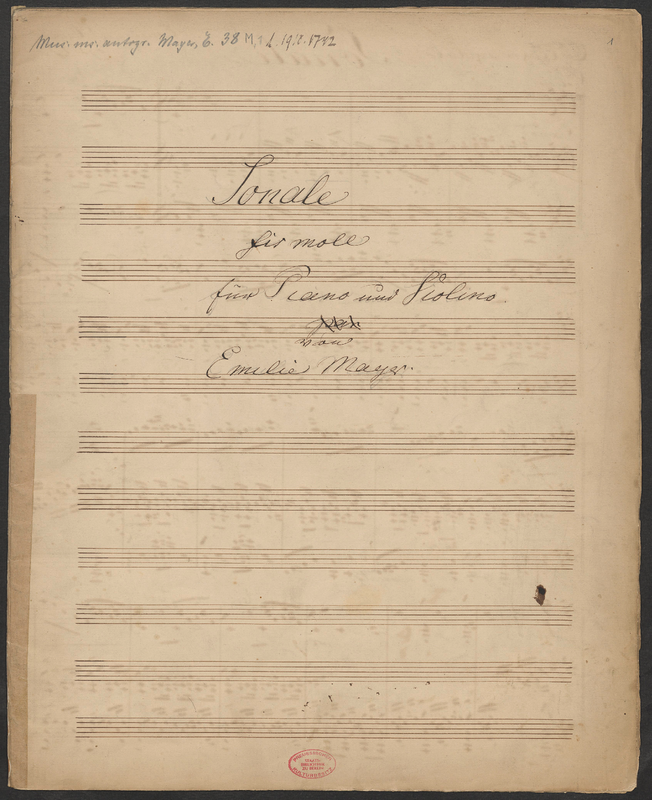 Mus. ms. autogr. Mayer, E. 38 M, 1919. 1742
1
Sonate
fis moll
für Piano und Violino
von
Emilie Mayer.